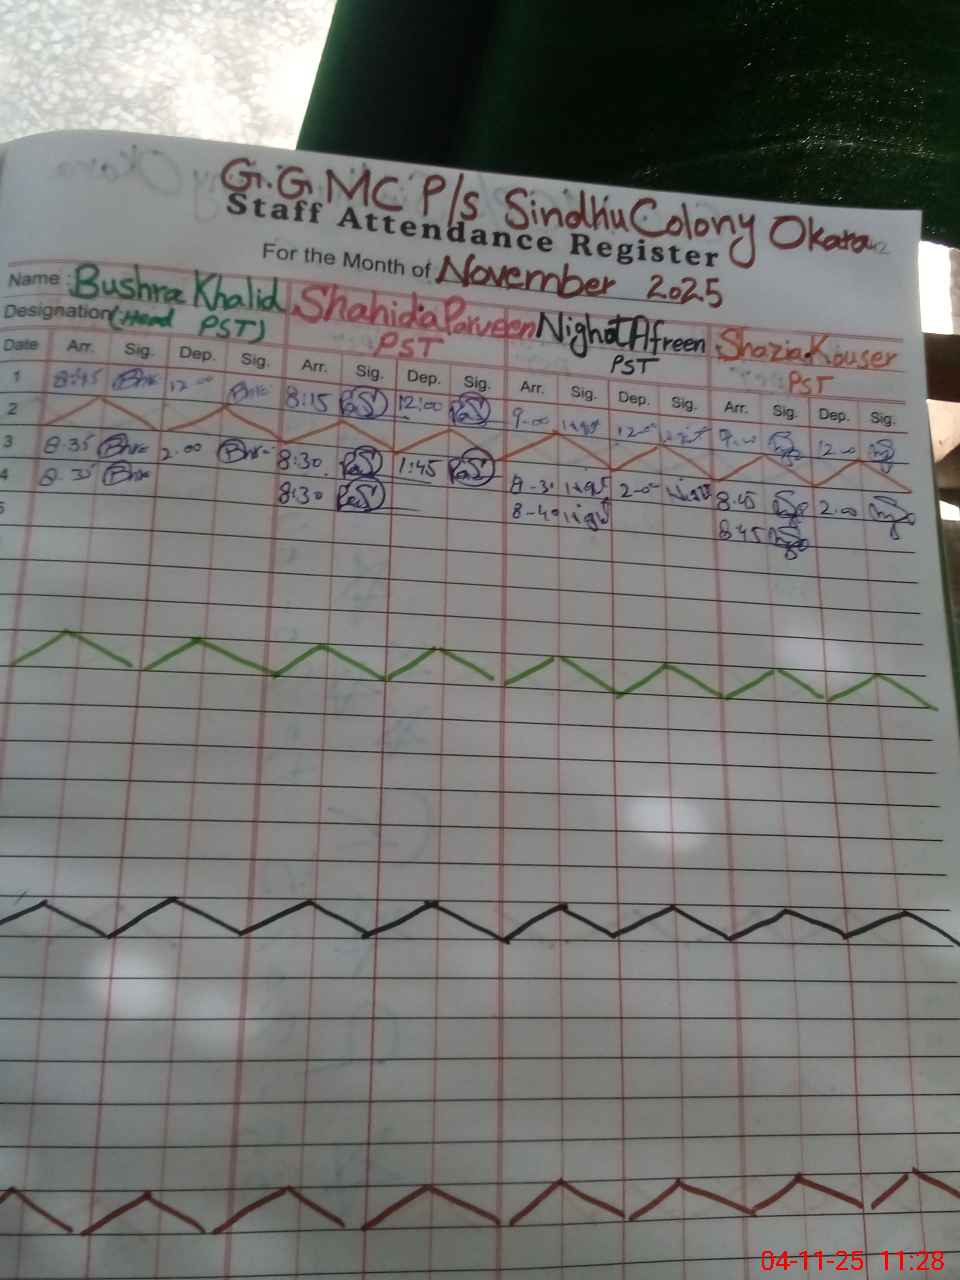 G.G MC P/s Sindhu Colony Okara
Staff Attendance Register
For the Month of November 2025
Name : Bushra Khalid Shahida Parveen Nighat Afreen Shazia Kouser
Designation (Head PST) PST PST PST
Date Arr. Sig. Dep. Sig. Arr. Sig. Dep. Sig. Arr. Sig. Dep. Sig. Arr. Sig. Dep. Sig.
1 8:45 12:00 8:15 12:00 9-00 12-00 9.00 12.00
2
3 8:35 2.00 8:30 1:45 8-3. 2-00 8.45 2.00
4 8:35 8:30 8-40 8:45
5
04-11-25 11:28